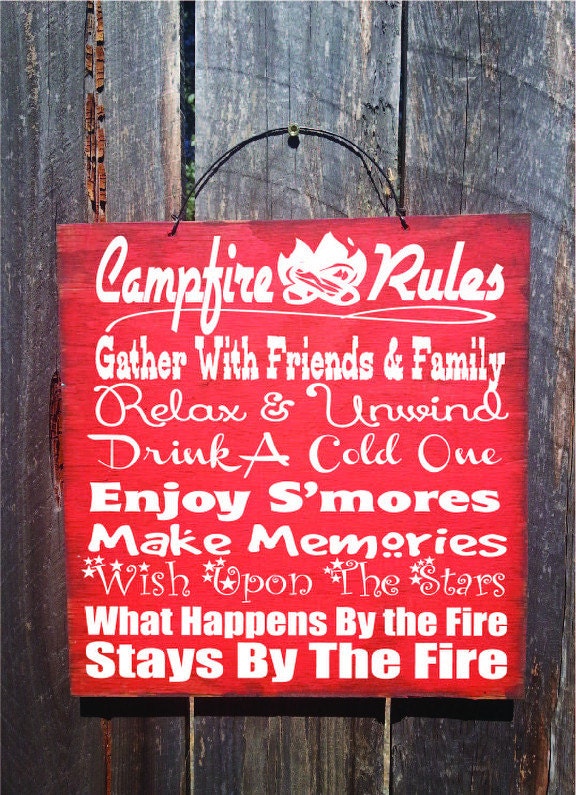 Campfire Rules
Gather With Friends & Family
Relax & Unwind
Drink A Cold One
Enjoy S'mores
Make Memories
Wish Upon The Stars
What Happens By the Fire
Stays By The Fire